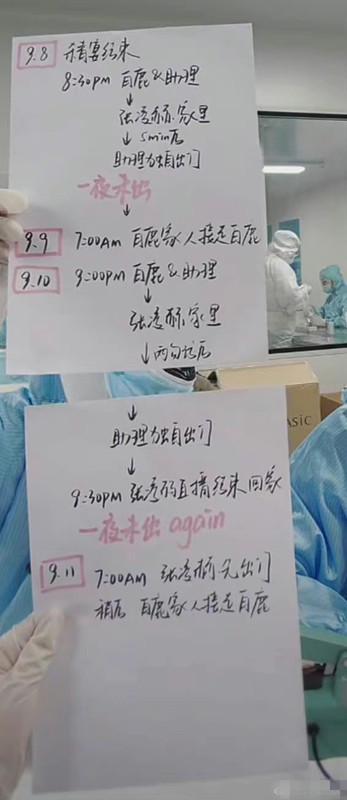 9.8 结束
8:30pm 百鹿&助理
↓
张凌赫家里
↓ 5min后
助理独自出门
一夜未出
↓
9.9 7:00AM 百鹿家人接走百鹿
9.10 9:00pm 百鹿&助理
↓
张凌赫家里
↓ 两分钟后
↓
助理独自出门
↓
9:30pm 张凌赫直播结束回家
一夜未出 again
↓
9.11 7:00AM 张凌赫先出门
稍后 百鹿家人接走百鹿
ASIC